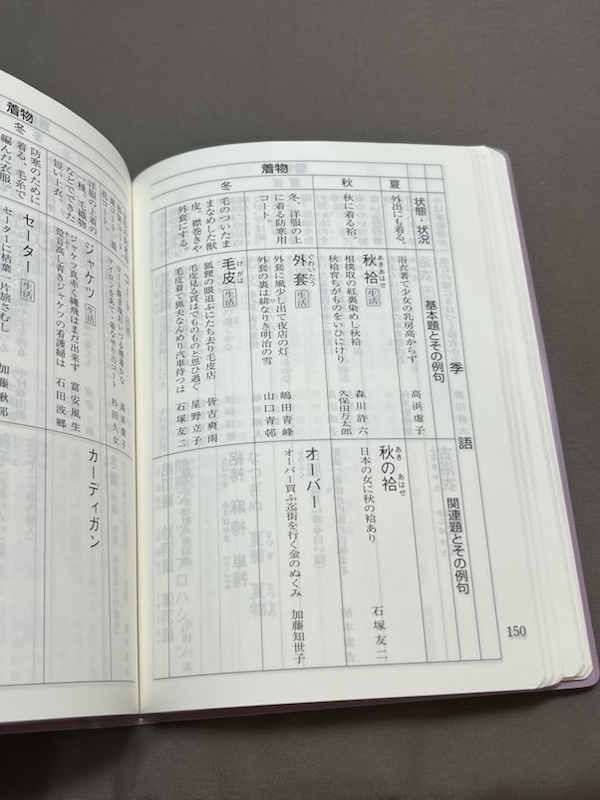 150
着物
夏
秋
冬
状態・状況
季語
基本題とその例句
関連題とその例句
外出にも着る。
浴衣著て少女の乳房高からず 高浜虚子
秋に着る袷。
秋袷 あきあはせ 生活
相撲取の紅裏染めし秋袷 森川許六
秋袷育ちがものをいひにけり 久保田万太郎
秋の袷 あき あはせ
日本の女に秋の袷あり 石塚友二
冬、洋服の上に着る防寒用コート。
外套 ぐわいたう 生活
外套に風少し出て夜店の灯 嶋田青峰
外套の裏は緋なりき明治の雪 山口青邨
オーバー
オーバー買ふ迄街を行く金のぬくみ 加藤知世子
毛のついたままなめした獣皮。襟巻きや外套にする。
毛皮 けがは 生活
狐狸の眼追ふにたち去り毛皮店 皆吉爽雨
毛皮見る買はでものものと思ひ過ぐ 星野立子
毛皮着て猟夫なんめり汽車待つは 石塚友二
着物
冬
高浜虚子
杉田久女
洋服の上着の一種。毛織物などでできた短い上衣。
ジャケツ 生活
ジャケツ真赤く縄飛はまだ出来ず 富安風生
跫音高し青きジャケツの看護婦は 石田波郷
カーディガン
防寒のために着る、毛糸で編んだ衣服。
セーター 生活
セーターに枯葉一片旅さむし 加藤秋邨